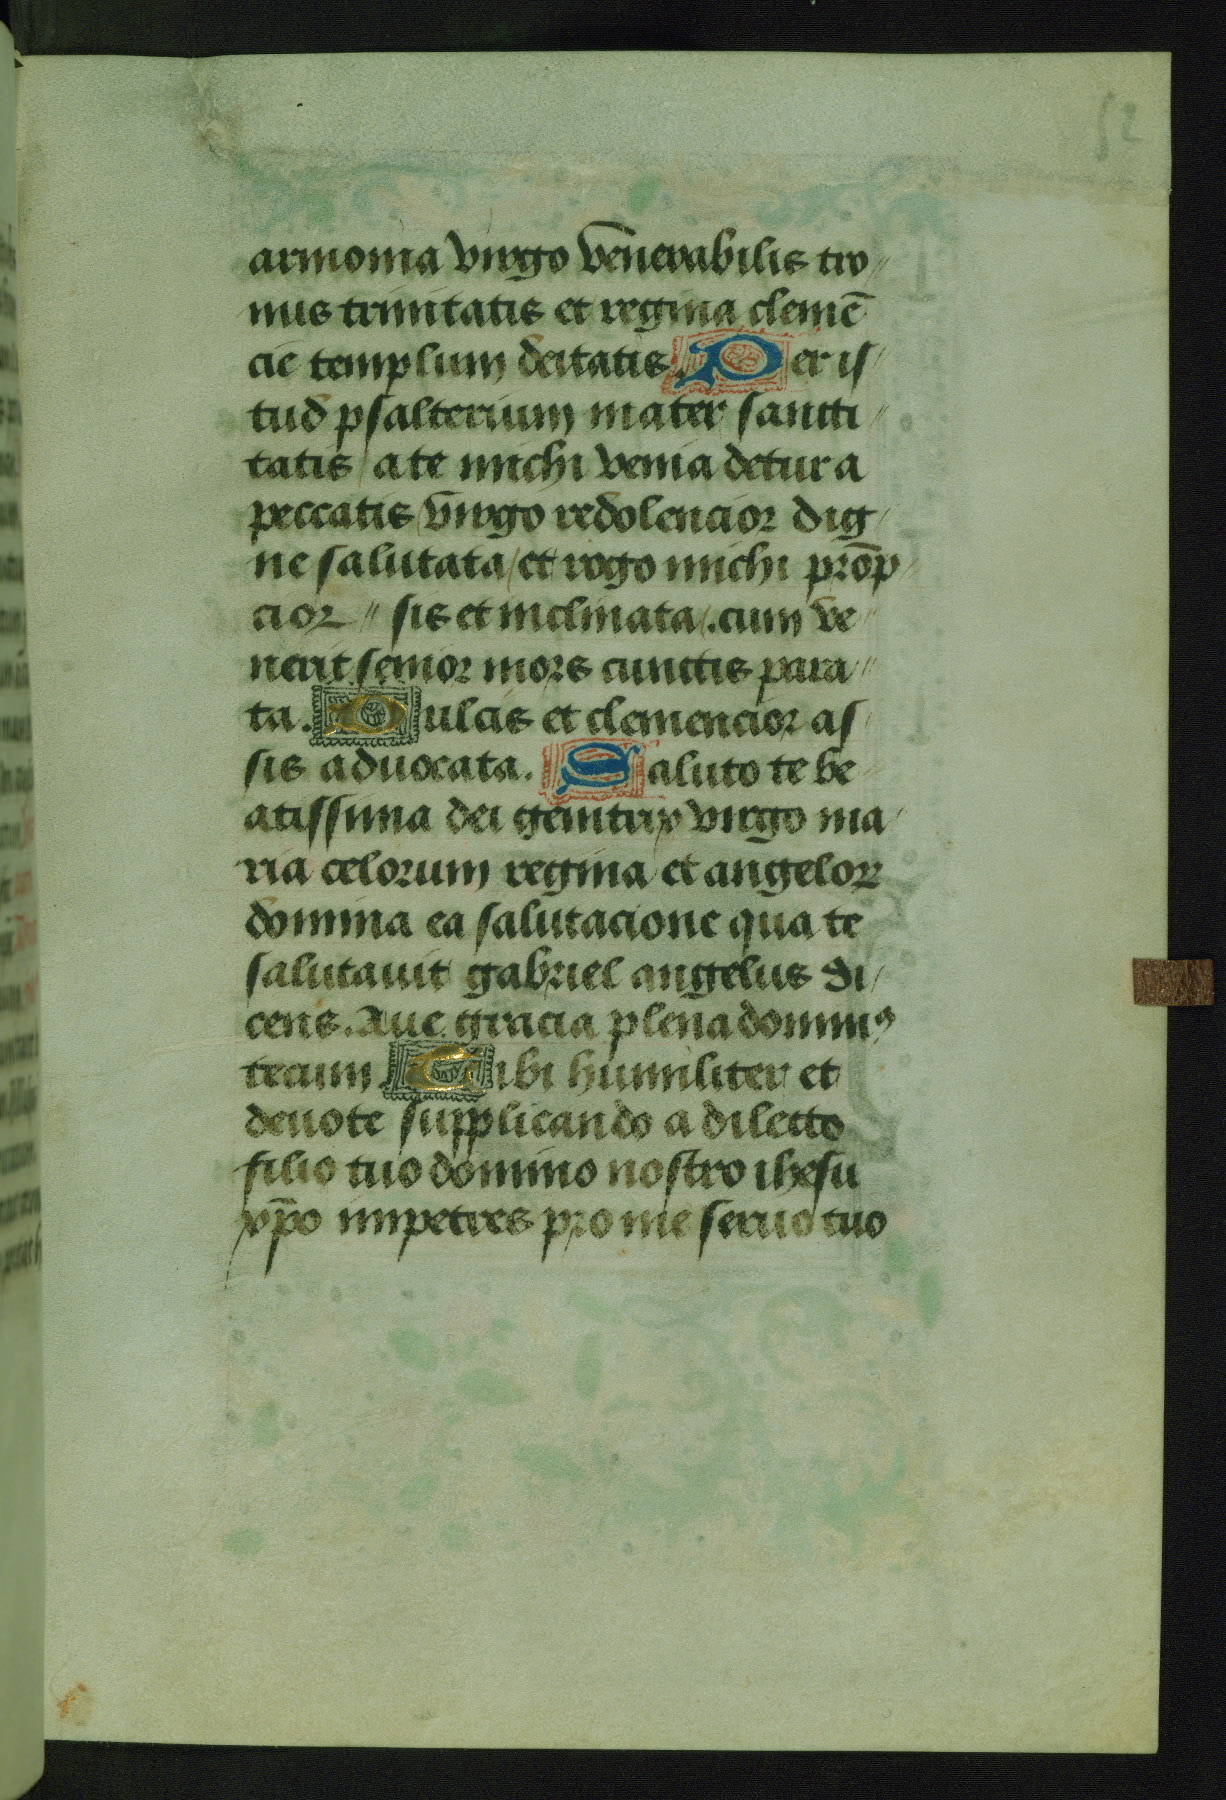 52
armonia virgo venerabilis tro//
nus trinitatis et regina clemē
cie templum deitatis. Per is/
tud psalterium mater sancti//
tatis / a te michi venia detur a
peccatis / virgo redolencior dig/
ne salutata / et rogo michi prōp/
cior // sis et inclinata / .cum ve//
nerit senior mors cunctis para//
ta. Dulcis et clemencior as/
sis aduocata. Saluto te be//
atissima dei genitrix virgo ma/
ria celorum regina et angelorꝝ
domina ea salutacione qua te
salutauit gabriel angelus di/
cens. Aue gracia plena dominꝰ
tecum. Tibi humiliter et
deuote supplicando a dilecto
filio tuo domino nostro ihesu
xp̄o impetres pro me seruo tuo